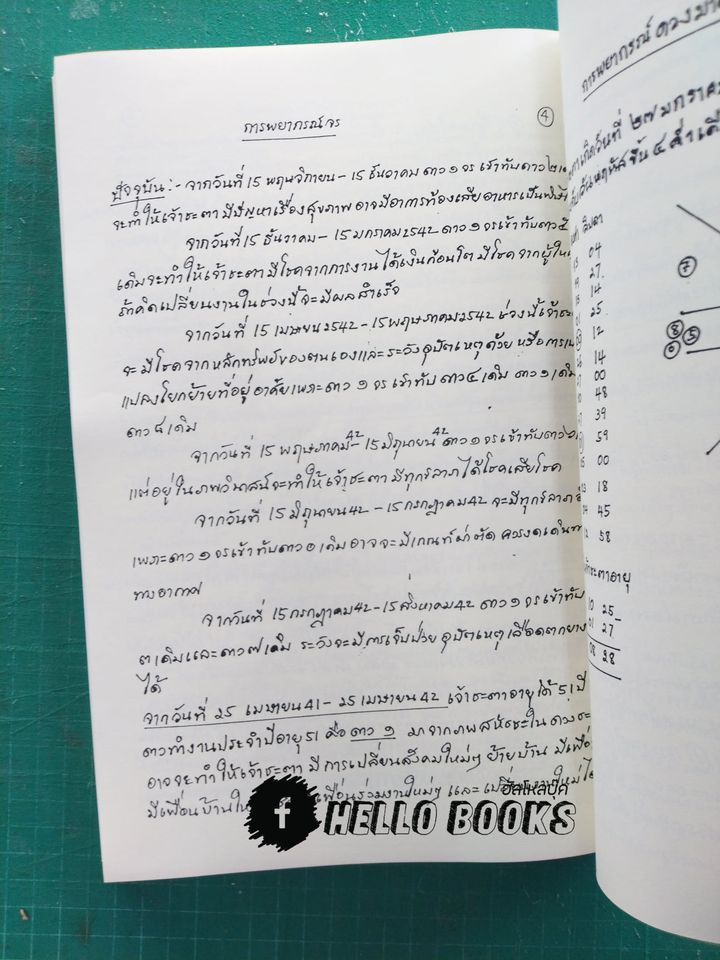 การพยากรณ์จร
④
ปัจจุบัน :- จากวันที่ 15 พฤษจิกายน - 15 ธันวาคม ดาว ๑ จร เข้าทับดาว ๒ เ
จะทำให้เจ้าชะตา มีปัญหาเรื่องสุขภาพ อาจมีอาการท้องเสีย อาหารเป็นพิษ
จากวันที่ 15 ธันวาคม - 15 มกราคม 2542 ดาว ๑ จร เข้าทับดาว ๕
เดิมจะทำให้เจ้าชะตา มีโชคจากการงาน ได้เงินก้อนโต มีโชค จากผู้ให
ถ้าคิดเปลี่ยนงานในช่วงนี้จะมีผลสำเร็จ
จากวันที่ 15 เมษายน 2542 - 15 พฤษภาคม 2542 ช่วงนี้เจ้าชะ
จะ มีโชค จากหลักทรัพย์ของตนเองและระวังอุบัติเหตุด้วย หรือการเป
แปลงโยกย้ายที่อยู่อาศัย เพราะ ดาว ๑ จร เข้าทับ ดาว ๔ เดิม ดาว ๑ เดิม
ดาว ๘ เดิม
จากวันที่ 15 พฤษภาคม 42 - 15 มิถุนายน 42 ดาว ๑ จร เข้าทับดาว
แต่อยู่ในภพวินาสน์จะทำให้เจ้าชะตา มีทุกข์ลาภ ได้โชคเสียโชค
จากวันที่ 15 มิถุนายน 42 - 15 กรกฎาคม 42 จะมีทุกข์ลาภ
เพราะดาว ๑ จร เข้าทับดาว ๐ เดิม อาจจะมีเกณฑ์ผ่าตัด ควรงดเดินท
ทางอากาศ
จากวันที่ 15 กรกฎาคม 42 - 15 สิงหาคม 42 ดาว ๑ จร เข้าทับ
๓ เดิมและดาว ๗ เดิม ระวังจะมีการเจ็บป่วย อุบัติเหตุเลือดตกยาง
ได้
จากวันที่ 25 เมษายน 41 - 25 เมษายน 42 เจ้าชะตาอายุได้ 51 ปี
ดาวทำงานประจำปีอายุ 51 คือ ดาว ๑ มาจากภพ สหัชชะใน ดวงชะ
อาจจะทำให้เจ้าชะตา มีการเปลี่ยนสังคมใหม่ๆ ย้ายบ้าน มีเพื่อ
มีเพื่อนบ้านให เพื่อนร่วมงานใหม่ๆ และ เปลี่ยนงานใหม่ได
ฮัลโหลบุ๊ค
f HELLO BOOKS
การพยากรณ์ ดวง
เกิดวันที่ ๒๗ มกราคม
ขึ้น ๔ ค่ำ เดื
ลิบดา
04
27
14
25
12
14
00
48
39
59
00
18
45
58
⑦
⑧
⓪ ⑤
ชะตาอายุ
10 25
01 27
08 28